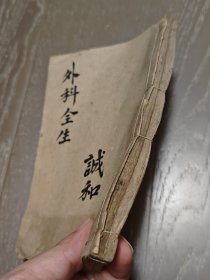 外科全生
誠和